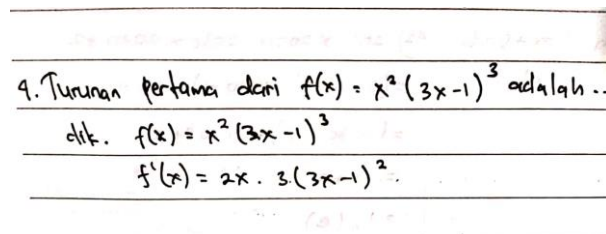 4. Turunan pertama dari f(x) = x² (3x-1)³ adalah..
dik. f(x) = x² (3x-1)³
f'(x) = 2x . 3.(3x-1)².